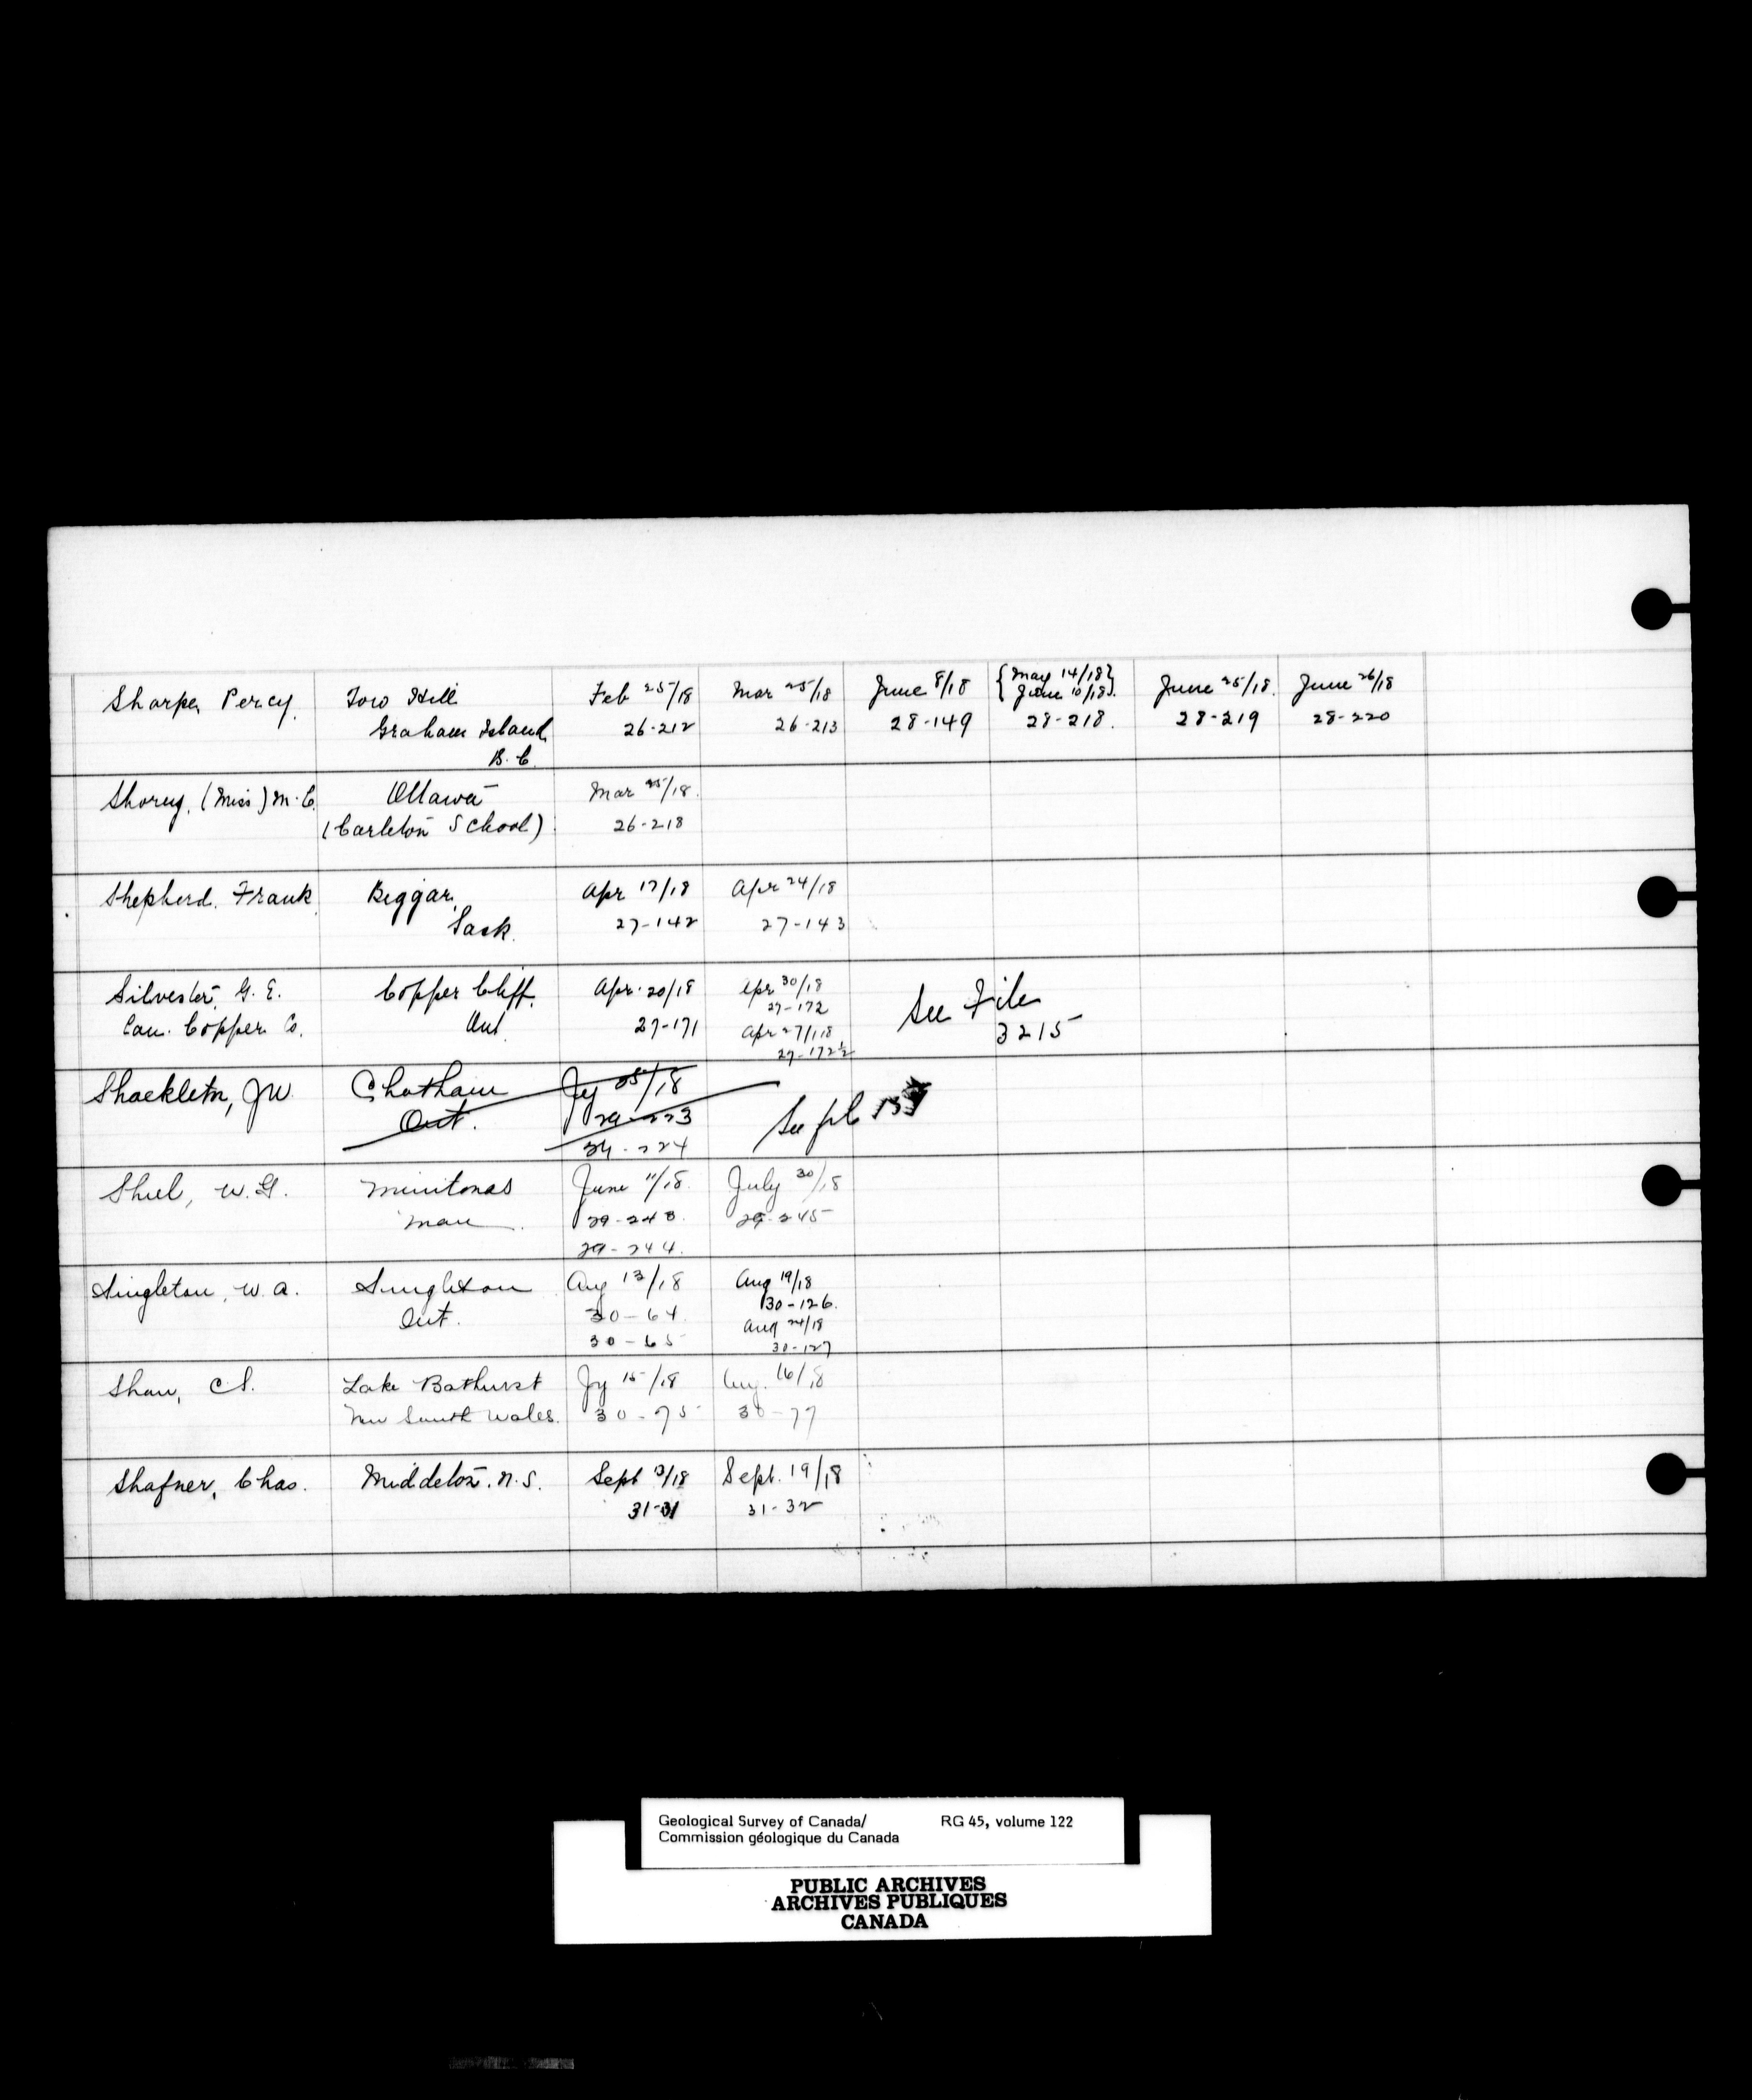 Sharpe, Percy. Tow Hill Feb 25/18 Mar 25/18 June 8/18 {May 14/18} June 25/18. June 26/18
Graham Island 26-212 26-213 28-149 {June 10/18}. 28-219 28-220
B.C. 28-218.
Shorey, (Miss) M.C. Ottawa Mar 25/18.
(Carleton School) 26-218
Shepherd, Frank Biggar, Apr 17/18 Apr 24/18
Sask. 27-142 27-143
Silvester, G. E. Copper Cliff, Apr. 20/18 Apr 30/18 See File
Can. Copper Co. Ont 27-171 27-172 3215
Apr 27/18
27-172½
Shackleton, JW. Chatham Jy 25/18
Ont. 29-223 See
29-224
W.G. Minitonas June 11/18. July 30/18
Man. 29-243. 29-245
29-244.
Singleton, W.A. Singleton Aug 13/18 Aug 19/18
Ont. 30-64. 30-126.
30-65 Aug 24/18
30-127
Shaw, C.S. Lake Bathurst Jy 15/18 Aug. 16/18
New South Wales. 30-75 30-77
Shafner, Chas. Middleton. N.S. Sept 13/18 Sept. 19/18
31-31 31-32
Geological Survey of Canada/ RG 45, volume 122
Commission géologique du Canada
PUBLIC ARCHIVES
ARCHIVES PUBLIQUES
CANADA